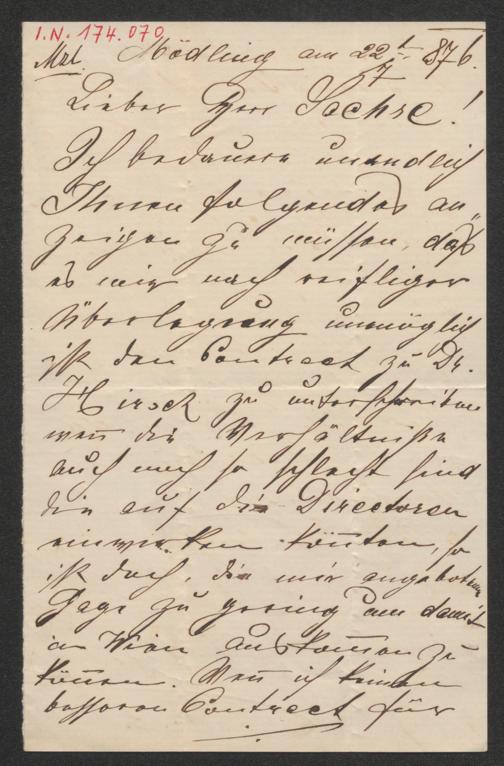 I.N. 174.070
Mödling am 22t/7 876.
Lieber Herr Sachse!
Ich bedauere unendlich
Ihnen folgendes an„
zeigen zu müssen, daß
es mir nach reiflicher
Überlegung unmöglich
ist den Contract zu Dr.
Hirsch zu unterschreiben
wenn die Verhältniße
auch noch so schlecht sind
die auf die Directoren
einwirken könnten, so
ist doch, die mir angebotene
Gage zu gering um damit
in Wien auskommen zu
können. Wenn ich keinen
besseren Contract für